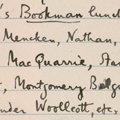 's Bookman lunch
Mencken, Nathan,
Mac Quarrie, Sta
, Montgomery Belg
nder Woollcott, etc.